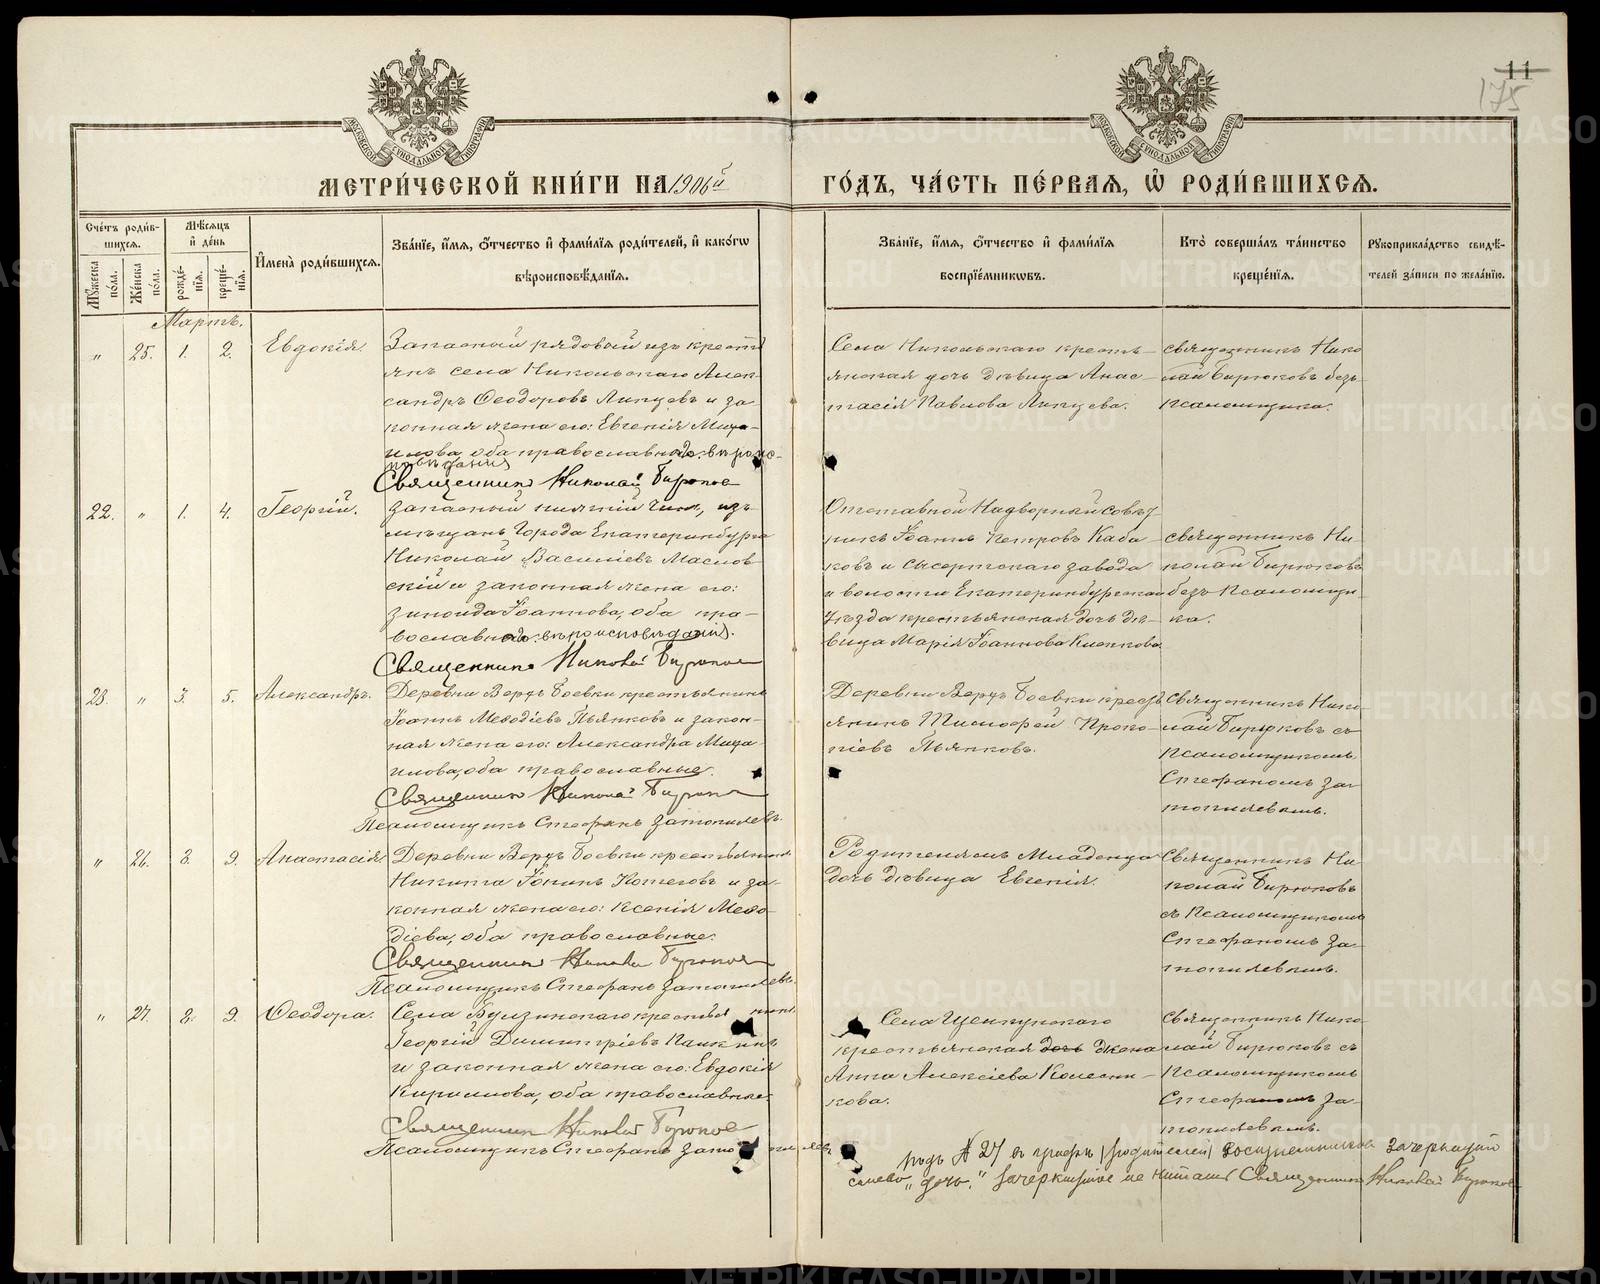 11
175
МОСКОВСКОЙ СУНОДАЛЬНОЙ ТИПОГРАФИИ
МОСКОВСКОЙ СУНОДАЛЬНОЙ ТИПОГРАФИИ
МЕТРИ́ЧЕСКОЙ КНИ́ГИ НА 1906й
ГО́ДЪ, ЧА́СТЬ ПЕ́РВАЯ, Ѡ РОДИ́ВШИХСЯ.
Сче́тъ роди́в-
шихся.
Мѣ́сяцъ
и де́нь
Му́жеска по́ла.
Же́нска по́ла.
рожде́-
нїя.
креще́-
нїя.
И҆мена̀ роди́вшихся.
Зва́нїе, и҆́мя, ѻ҆́тчество и҆ фами́лїя роди́телей, и҆ како́гѡ
вѣроисповѣ́данїя.
Зва́нїе, и҆́мя, ѻ҆́тчество и҆ фами́лїя
воспрїе́мникѡвъ.
Кто̀ соверша́лъ та́инство
креще́нїя.
Рукоприкла́дство свидѣ́-
телей за́писи по жела́нїю.
Мартъ.
„ 25. 1. 2. Евдокія.
Запасный рядовый изъ кресть
янъ села Никольскаго Алек-
сандръ Ѳеодоровъ Липцевъ и за-
конная жена его: Евгенія Миха-
илова, оба православнаго вѣроис-
повѣданія
Священникъ Николай Бирюков
Села Никольскаго кресть-
янская дочь дѣвица Анас-
тасія Павлова Липцева.
священникъ Нико
лай Бирюковъ безъ
псаломщика.
22. „ 1. 4. Георгій.
запасный нижній чинъ, изъ
мѣщанъ Города Екатеринбурга
Николай Василіевъ Маслов
скій и законная жена его:
Зиноида Іоаннова, оба пра-
вославнаго вѣроисповѣданія.
Священникъ Николай Бирюков
Отставной Надворный совѣт
никъ Іоаннъ Петровъ Каба
ковъ и Сысертскаго завода
и волости Екатеринбургскаго
Уѣзда крестьянская дочь дѣ-
вица Марія Іоаннова
священникъ Ни-
колай Бирюковъ
безъ Псаломщи-
ка.
23. „ 3. 5. Александръ.
Деревни Верхъ Боевки крестьянинъ
Іоаннъ Меѳодіевъ Пьянковъ и закон-
ная жена его: Александра Миха
илова, оба православные.
Священникъ Николай Бирюков
Псаломщикъ Стефанъ Затопляевъ.
Деревни Верхъ Боевки крестъ
янинъ Тимофей Проко-
піевъ Пьянковъ.
Священникъ Нико-
лай Бирюковъ съ
псаломщикомъ
Стефаномъ За-
топляевымъ.
„ 26. 8. 9. Анастасія
Деревни Верхъ Боевки крестьянинъ
Никита Іонинъ Котеговъ и за-
конная жена его: Ксенія Меѳо-
діева, оба православные.
Священникъ Николай Бирюков
Псаломщикъ Стефанъ Затопляевъ.
Родителямъ Младенца
дочь дѣвица Евгенія.
Священникъ Ни-
колай Бирюковъ
съ Псаломщикомъ
Стефаномъ За-
топляевымъ.
„ 27. 8. 9. Ѳеодора.
Села крестьянинъ
Георгій Димитріевъ
и законная жена его: Евдокія
Кириллова, оба православные.
Священник Николай Бирюков
Псаломщикъ Стефанъ Затопляевъ
Села Щелкунскаго
крестьянская дочь жена
Анна Алексіева Колесни-
кова.
священникъ Нико-
лай Бирюковъ съ
Псаломщикомъ
Стефаномъ За-
топляевымъ.
подъ № 27 въ графѣ родителей воспріемниковъ зачеркнуто
слово „дочь." Зачеркнутое не читать Священникъ Николай Бирюков